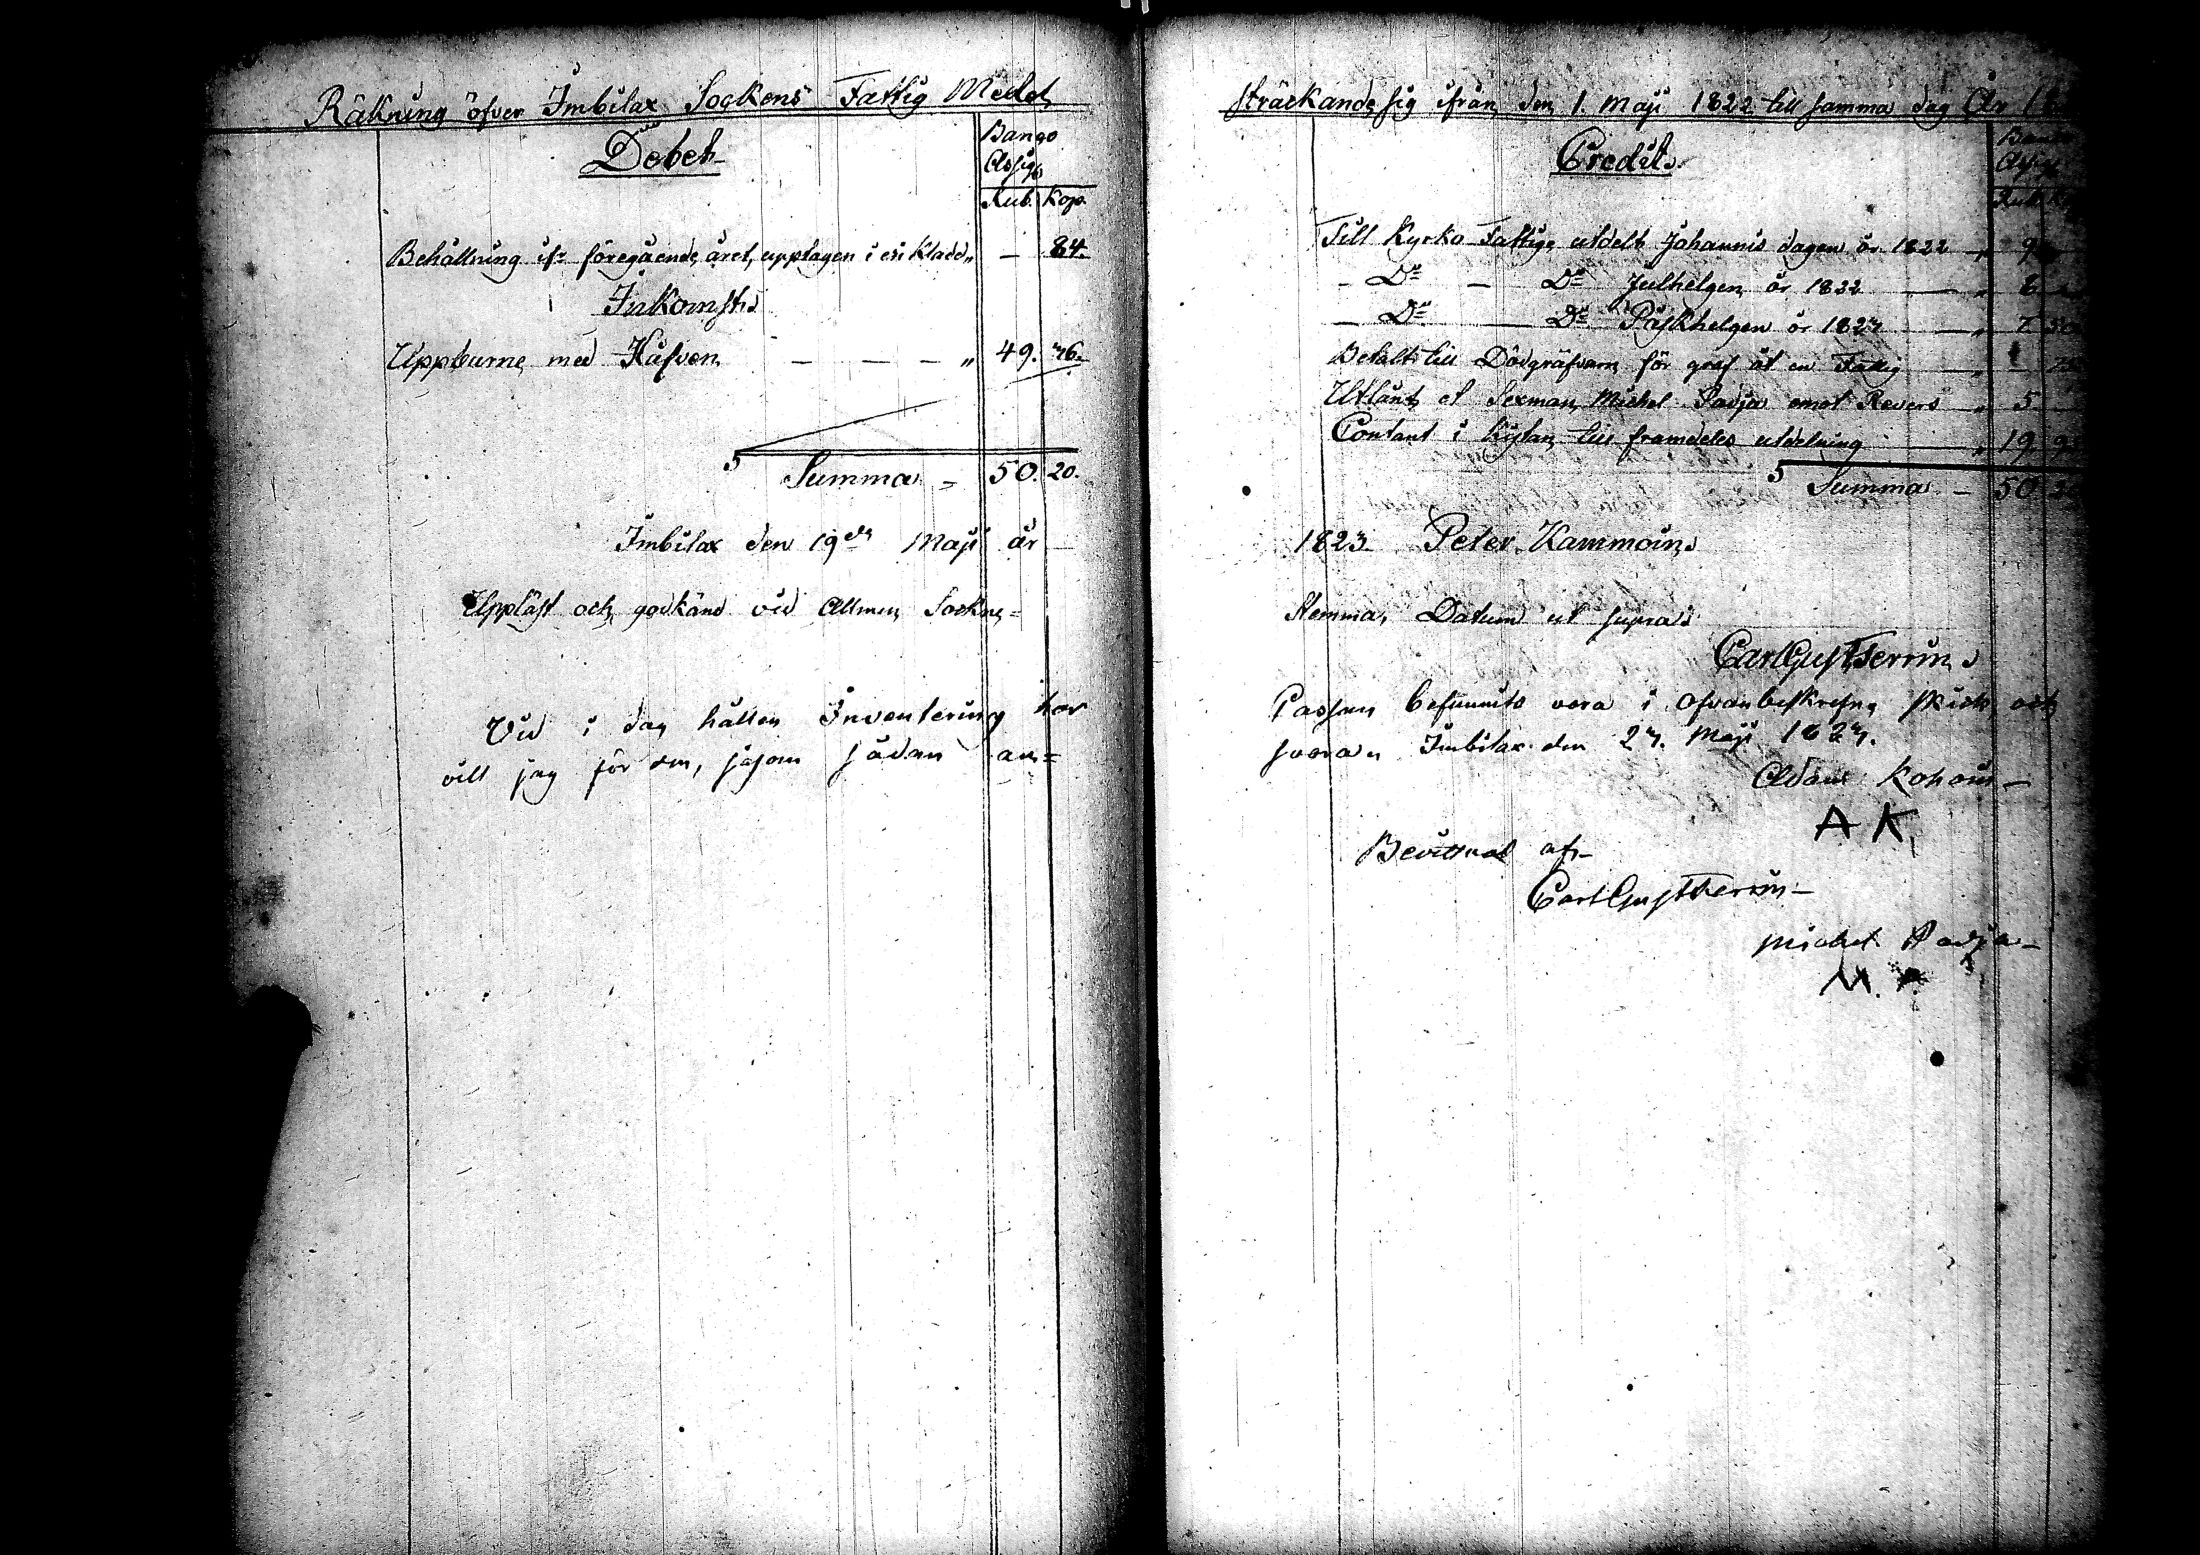 Räkning öfver Imbilax Sockens Fattig Medel
Debet
Banco
Assig:
Rub. Kop.
Behållning ifr föregående året, upptagen i Kladd „ — 84.
Inkomst
Uppburne med Håfven — — — — „ 49. 36.
Summa — 50. 20.
Imbilax den 19de Maji år
Uppläst och godkänd vid Allmen Sockne=
Vid i dag hållen Inventering har
vill jag för den, såsom sådan an=
sträckande sig ifrån den 1. Maji 1822 till samma dag År
Credit
Banco
Assig
Rub.
Till Kyrko Fattige utdelt Johannis dagen år 1822 „ 9
— Do — Do Julhelgen år 1822 — „ 8
— Do — Do Påskhelgen år 1823 — „ 7. 50
Betalt till Dödgräfvaren för graf åt en Fattig — „
Utlånt åt Sexman Michel Padja emot Revers „ 5
Contant i Kistan till framdeles utdelning — „ 19.
Summa — 50
1823. Peter Kammoin
Stemma, Datum ut supra
Carl Gust Terrin
Cassan befunnits vara i ofvanbeskrefne skick, och
svara. Imbilax den 23. Maji 1823.
Adam Kohoin —
A K.
Bevittnat af—
Carl Gust Terrin —
Michel Padja —
M. P.